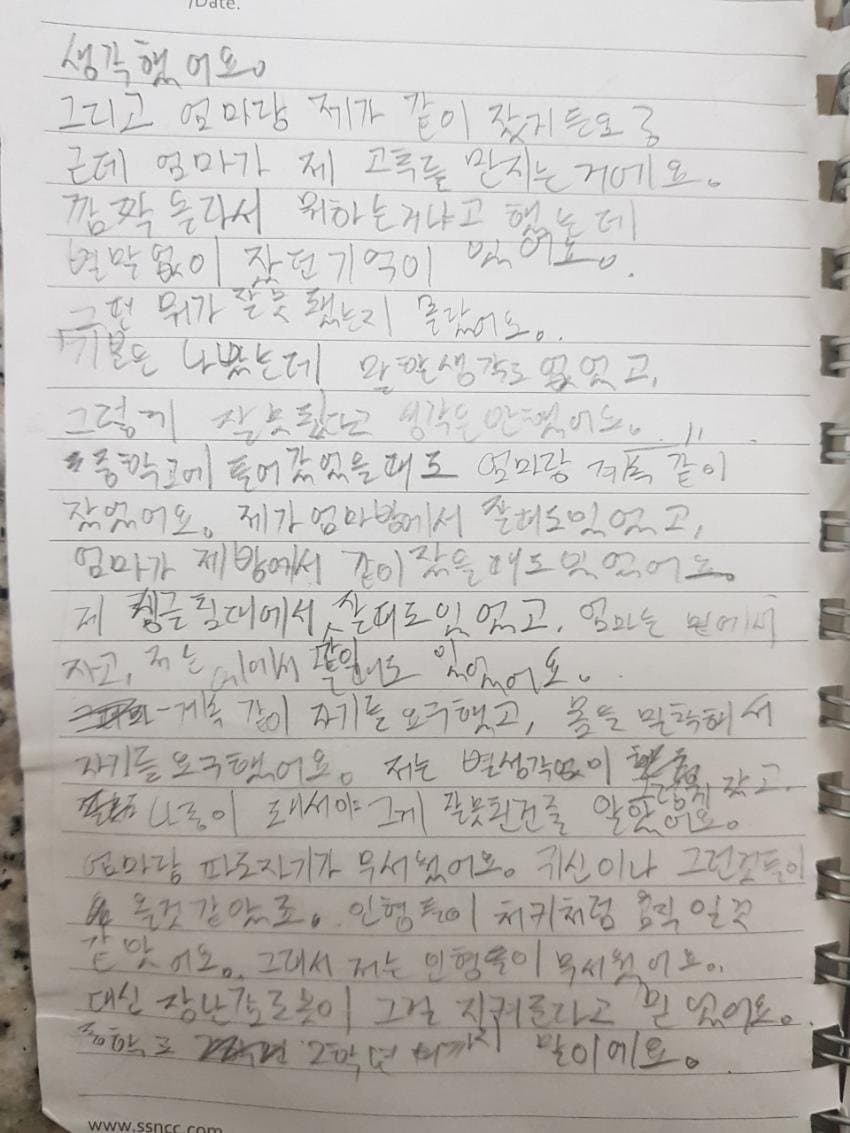 /Date.
생각했어요.
그리고 엄마랑 제가 같이 잤거든요?
근데 엄마가 제 고추를 만지는거에요.
깜짝 놀라서 뭐하는거냐고 했는데
별막없이 잤던기억이 있어요.
그땐 뭐가 잘못됐는지 몰랐어요.
기분은 나빴는데 말할생각도 없었고,
그렇게 잘못됬다고 생각은안했어요.
중학교에 들어갔었을때도 엄마랑 계속 같이
잤었어요. 제가엄마방에서 잘때도있었고,
엄마가 제방에서 같이잤을때도있었어요.
제 싱글침대에서 잘때도있었고, 엄마는 밑에서
자고, 저는 위에서 잘때도 있었어요.
계속 같이 자기를 요구했고, 몸을 밀착해서
자기를요구했어요. 저는 별생각없이 그렇게 잤고,
나중이 돼서야 그게 잘못된건줄 알았어요.
엄마랑 따로자기가 무서웠어요. 귀신이나 그런것들이
올것같았죠. 인형들이 처키처럼 움직일것
같았어요. 그래서 저는 인형들이 무서웠어요.
대신 장난감로봇이 그걸 지켜준다고 믿었어요.
중학교 2학년 때까지 말이에요.
www.ssncc.com